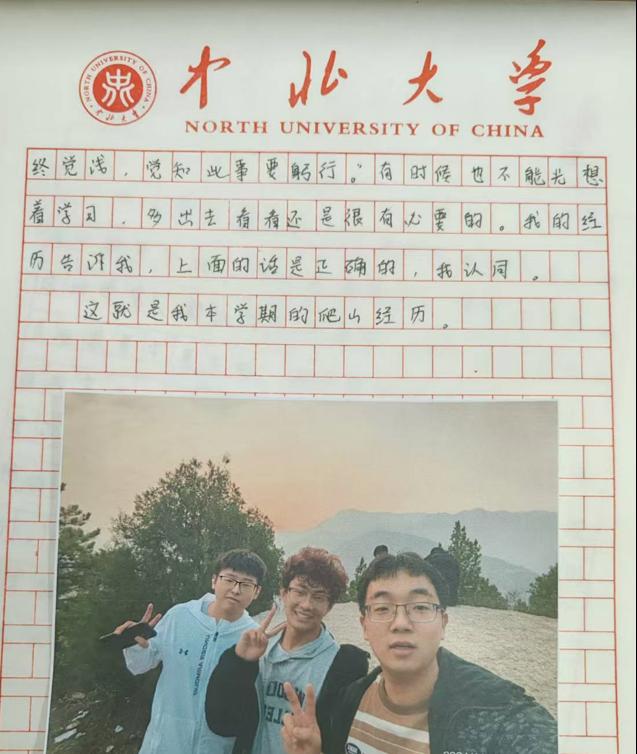 NORTH UNIVERSITY OF CHINA
中北大学
中北大学
NORTH UNIVERSITY OF CHINA
终觉浅，觉知此事要躬行。”有时候也不能光想
着学习，多出去看看还是很有必要的。我的经
历告诉我，上面的话是正确的，我认同。
这就是我本学期的爬山经历。
UNDER ARMOUR